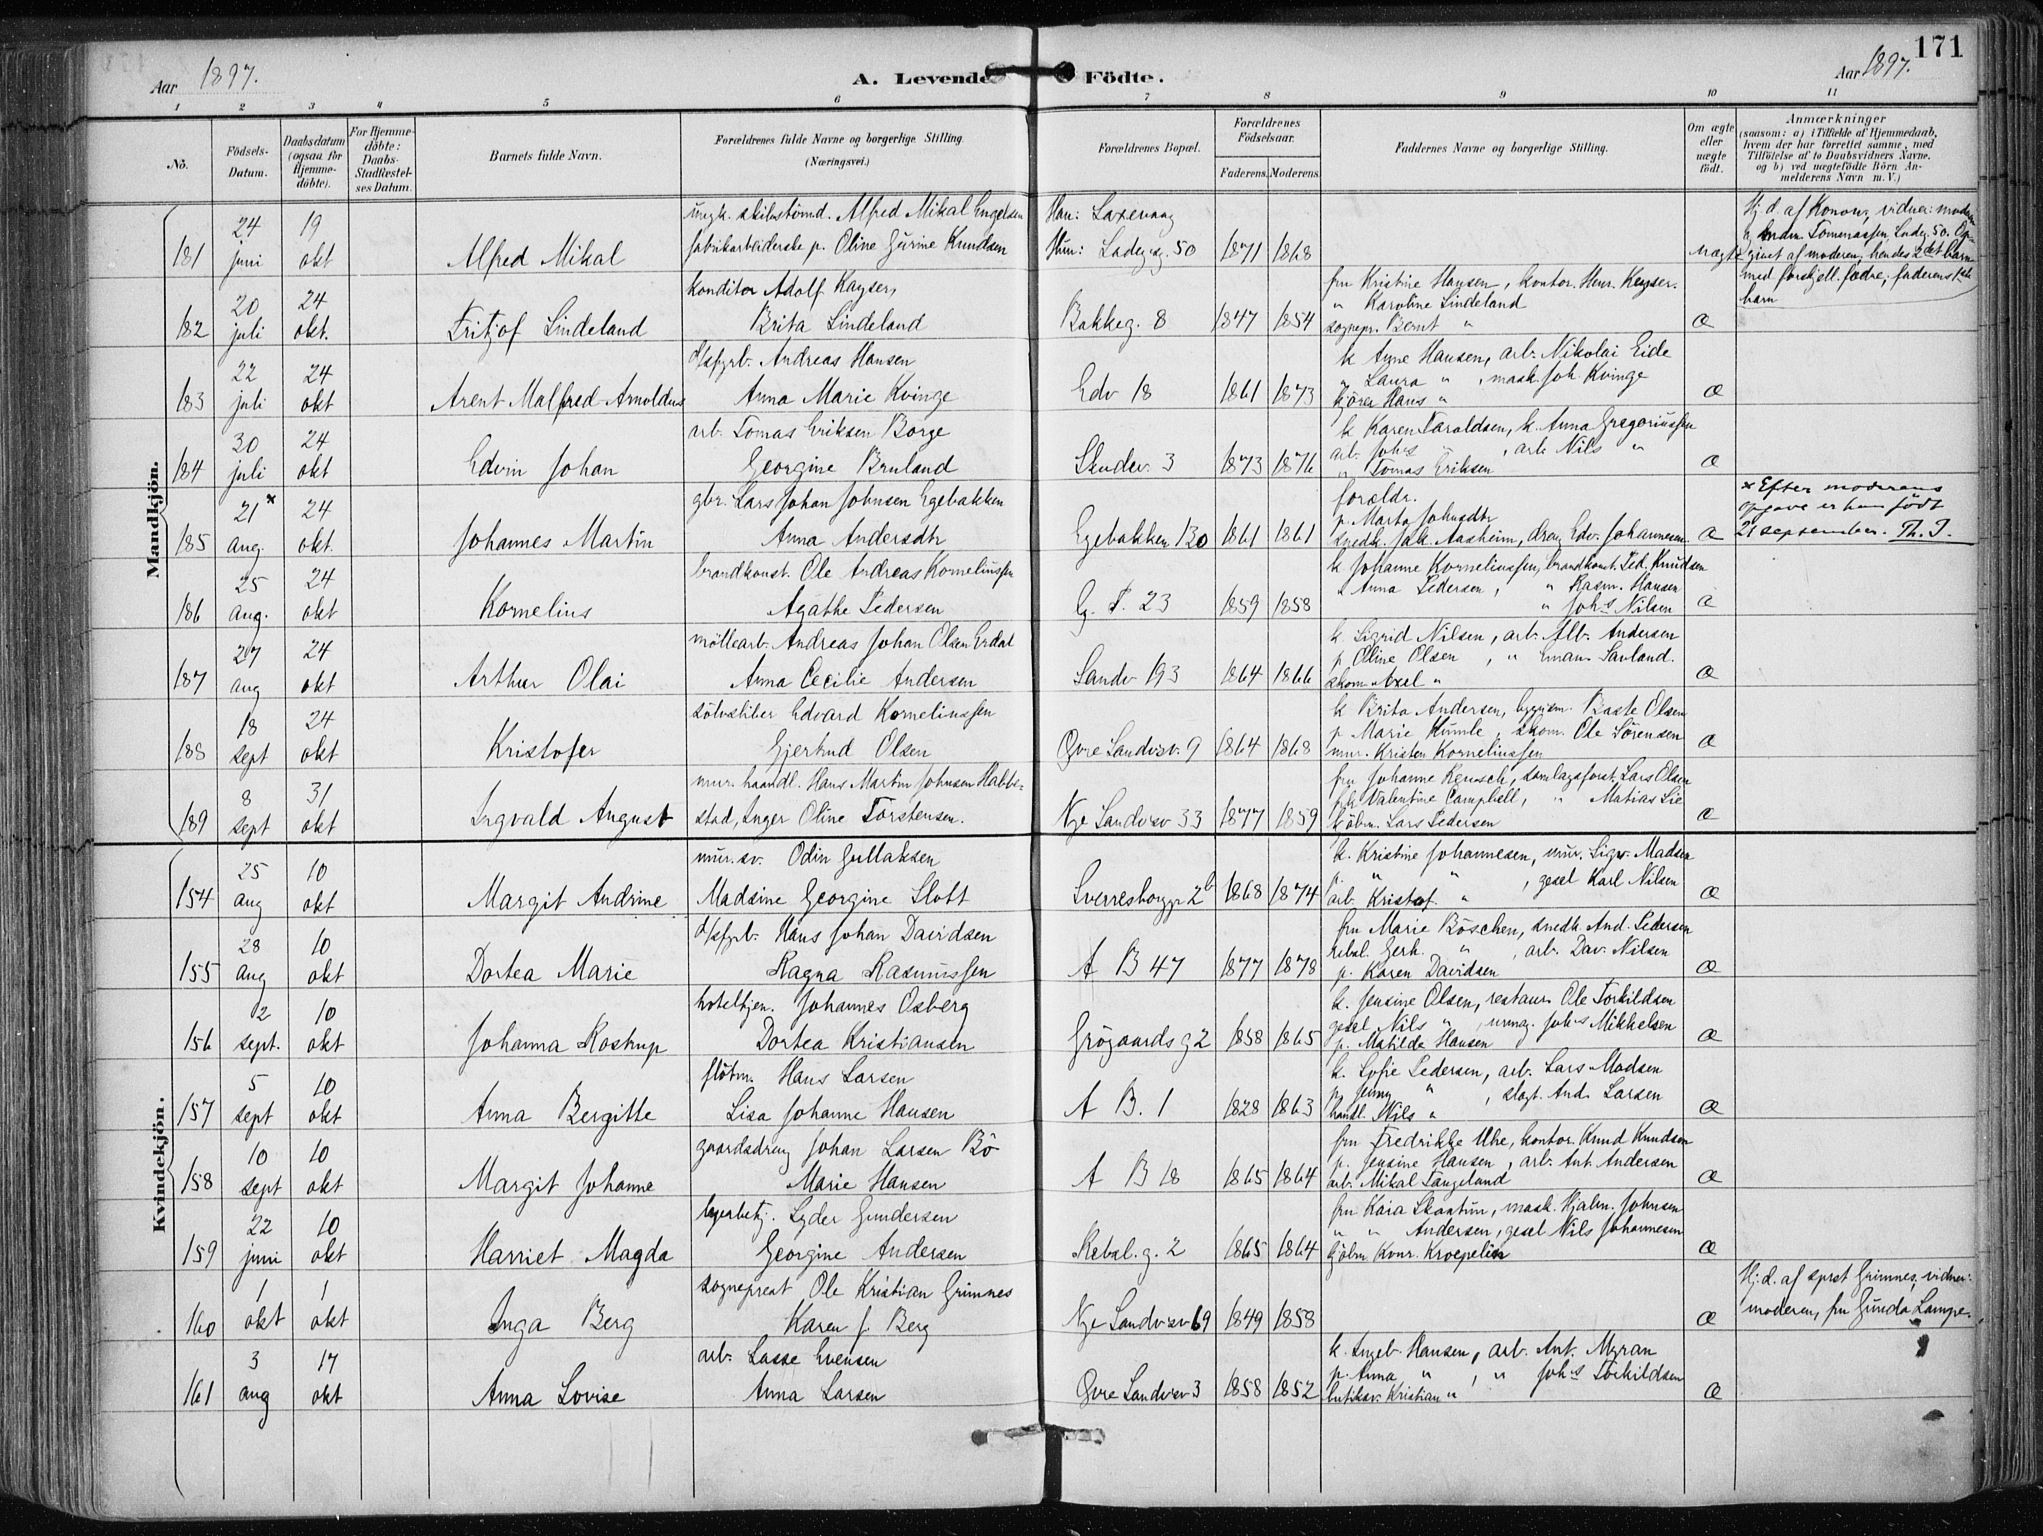 171
Aar 1897. A. Levende Födte. Aar 1897.
1 2 3 4 5 6 7 8 9 10 11
No. Födsels-Datum. Daabsdatum (ogsaa för Hjemme-döbte). For Hjemme-döbte: Daabs-Stadfæstel-ses Datum. Barnets fulde Navn. Forældrenes fulde Navne og borgerlige Stilling. (Næringsvei.) Forældrenes Bopæl. Forældrenes Födselsaar. Faderens. Moderens. Faddernes Navne og borgerlige Stilling. Om ægte eller uægte födt. Anmærkninger (saasom: a) i Tilfælde af Hjemmedaab, hvem der har forrettet samme, med Tilföielse af to Daabsvidners Navne, og b) ved uægtefödte Börn An-melderens Navn m. V.)
Mandkjön.
181 24 juni 19 okt Alfred Mikal
ungk. Alfred Mikal Engelsen
fabrikarbeiderske p. Oline Gurine Knudsen
Han: Laxevaag
Hun: Ladeg.g. 50 1871 1868 uægte
Hj.d. af Konow, vidner: moderen
Tomassen Ladeg. 50. Op-
givet af moderen, hendes 2det barn
med forskjell. fædre; faderens 1ste
barn
182 20 juli 24 okt. Fritjof Lindeland
konditor Adolf Kayser,
Brita Lindeland
Bakkeg. 8 1847 1854
fru Kristine Hansen, kontor. Henr. Keyser.
" Karoline Lindeland
sognepr. Bernt " æ
183 22 juli 24 okt Arent Malfred Arnoldus
d/sfyrb. Andreas Hansen
Anna Marie Kvinge
Edv 18 1861 1873
k Anne Hansen, arb. Nikolai Eide
" Laura ", mask. Joh. Kvinge
kjörer Hans " æ
184 30 juli 24 okt Edvin Johan
arb. Tomas Eriksen Borge
Georgine Bruland
Skudev. 3 1873 1876
k Karen Taraldsen, k. Anna Gregoriussen
arb. Johs ", arb. Nils "
" Tomas Eriksen æ
185 21 x aug. 24 okt. Johannes Martin
gbr. Lars Johan Johnsen Egebakken
Anna Andersdtr
Egebakken 130 1861 1861
forældr.
p. Marta Johnsdtr
snedk. Jak. Aasheim, dreng Edv. Johannesen æ
x Efter moderens
opgave er han födt
21 september. Th. J.
186 25 aug. 24 okt Kornelius
brandkonst. Ole Andreas Korneliussen
Agathe Pedersen
G. P. 23 1859 1858
k Johanne Korneliussen, brandkonst. Ped. Knudsen
" Anna Pedersen, " Rasm. Hansen
" Johs Nilsen æ
187 27 aug 24 okt Arthur Olai
möllearb. Andreas Johan Olsen Erdal
Anna Cecilie Andersen
Sandv 193 1864 1866
k. Sigrid Nilsen, arb. Alb. Andersen
p Oline Olsen, " Eman. Sauland.
skom. Axel " æ
188 18 sept 24 okt Kristofer
Edvard Korneliussen
Gjertrud Olsen
Övre Sandvsv. 9 1864 1868
k Brita Andersen, Baste Olsen
p Marie Humle, skom. Ole Sörensen
mur. Kristen Korneliussen æ
189 8 sept 31 okt Ingvald August
mur. haandl. Hans Martin Johnsen Habbe-
stad, Inger Oline Torstensen.
Nye Sandvsv 33 1877 1859
fru Johanne Reusch, samlagsforst. Lars Olsen
Valentine Campbell, " Matias Lie
kjöbm. Lars Pedersen æ
Kvindekjön.
154 25 aug 10 okt Margit Andrine
mur. sv. Odin Gullaksen
Madsine Georgine Slott
Sverresborggt 2b 1868 1874
k. Kristine Johannesen, mur. Sigv. Madsen
p. " ", gesel Karl Nilsen
arb. Kristof. " æ
155 28 aug 10 okt Dortea Marie
d/sfyrb. Hans Johan Davidsen
Ragna Rasmussen
A B 47 1877 1878
fru Marie Böschen, snedk. And. Pedersen
rebsl. Gerh. ", arb. Dav. Nilsen
p. Karen Davidsen æ
156 2 sept. 10 okt Johanna Rostrup
hotelbtjen. Johannes Osberg
Dortea Kristiansen
Grögaards g 2 1858 1865
k. Jensine Olsen, restaur. Ole Torkildsen
gesel Nils ", urmag. Johs Mikkelsen
p. Matilde Hansen æ
157 5 sept 10 okt Anna Bergitte
flötm. Hans Larsen
Lisa Johanne Hansen
A B. 1 1828 1863
k. Sofie Pedersen, arb. Lars Madsen
p. Jenny ", slagt. And. Larsen
handl. Nils " æ
158 10 sept 10 okt Margit Johanne
gaardsdreng Johan Larsen Bö
Marie Hansen
A B 18 1865 1864
fru Fredrikke Uhe, kontor. Knud Knudsen
p. Jensine Hansen, arb. Ant. Andersen
arb. Mikal Tangeland æ
159 22 juni 10 okt Harriet Magda
lagerbetj. Lyder Gundersen
Georgine Andersen
Rebsl. g. 2 1865 1864
fru Kaia Skontun, mask. Hjalm. Johnsen
" " Andersen, gesel Nils Johannesen
kjöbm Konr. Kroepelin æ
160 1 okt 1 okt Inga Berg
sogneprest Ole Kristian Grimnes
Karen J. Berg
Nye Sandvsv 69 1849 1858 æ
Hj.d. af sprst Grimnes, vidner:
moderen, fru Gunda Lampe.
161 3 aug 17 okt Anna Lovise
arb. Lasse Evensen
Anna Larsen
Övre Sandvsv 3 1858 1852
k. Ingeb. Hansen, arb. Ant. Myran
p. Anna ", " Johs Torkildsen
butiksv. Kristian " æ